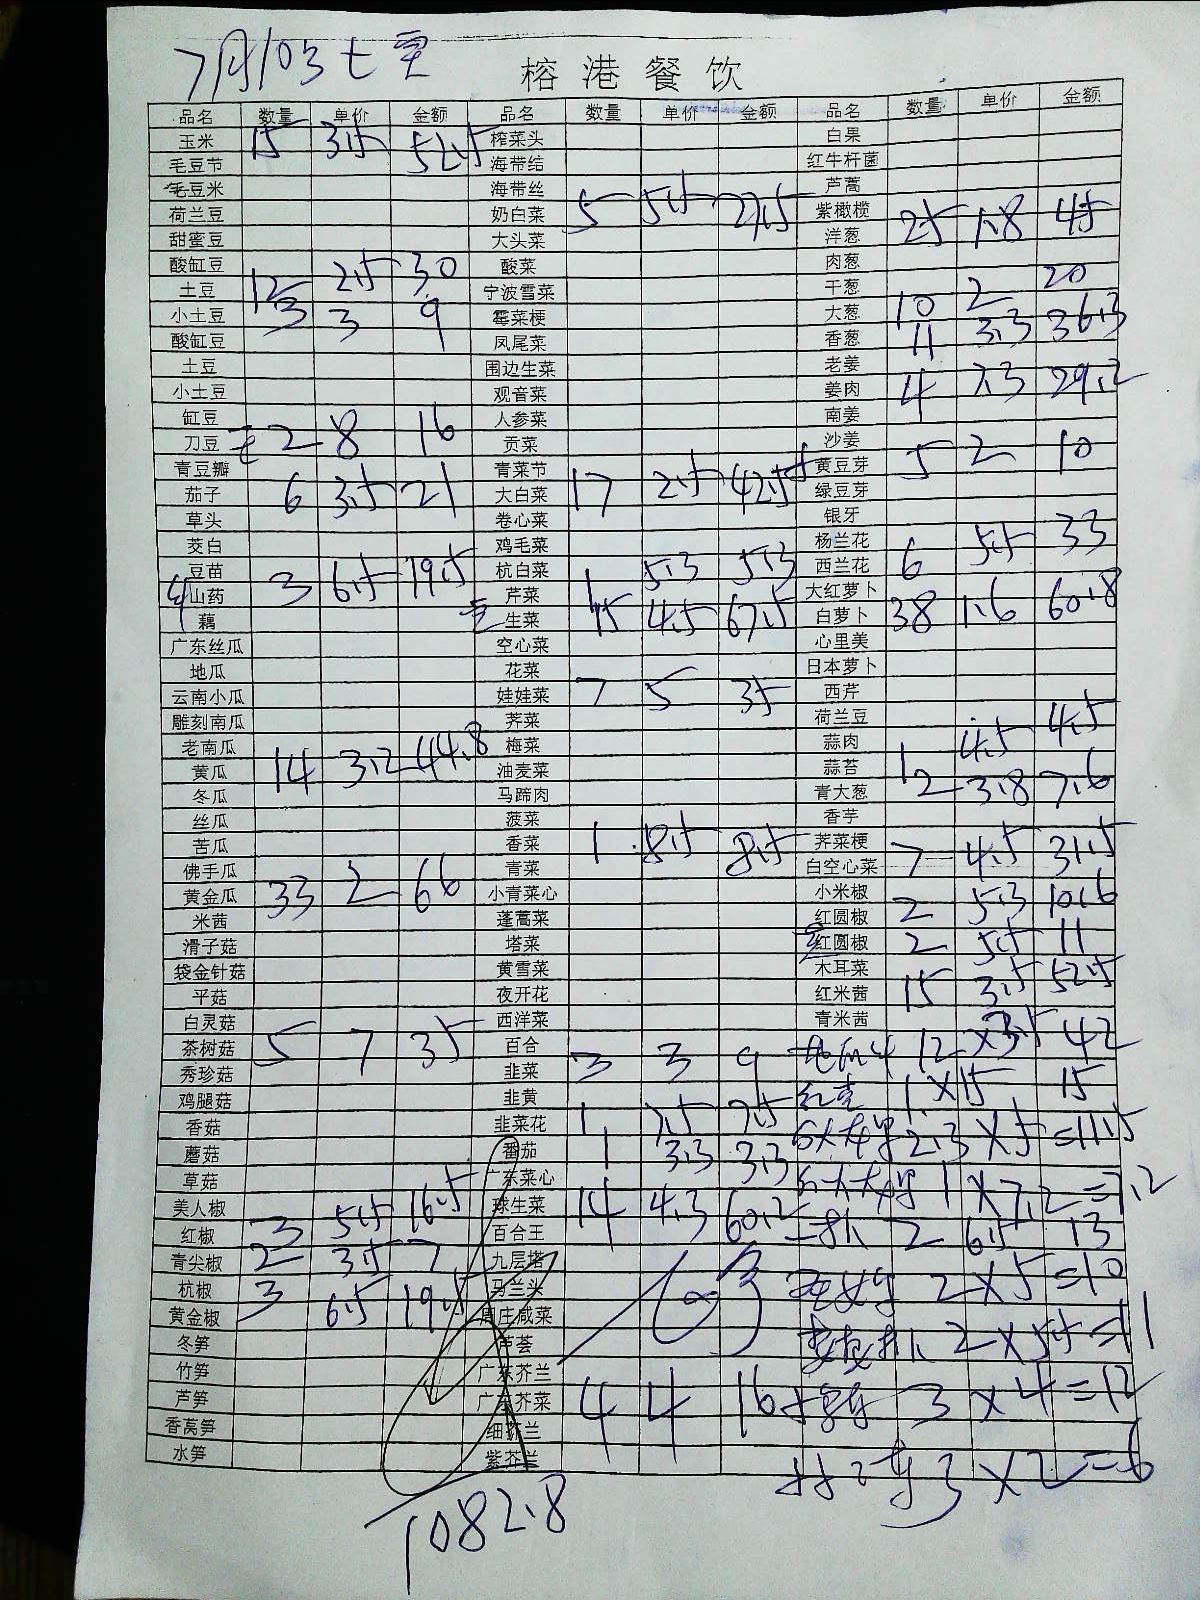 7月10号
榕港餐饮
品名 数量 单价 金额 品名 数量 单价 金额 品名 数量 单价 金额
玉米 15 3.5 52.5 榨菜头 白果
毛豆节 海带结 红牛杆菌
毛豆米 海带丝 芦蒿
荷兰豆 奶白菜 5 5.5 27.5 紫橄榄
甜蜜豆 大头菜 洋葱 25 1.8 45
酸缸豆 酸菜 肉葱
土豆 12 2.5 30 宁波雪菜 干葱
小土豆 3 3 9 霉菜梗 大葱 10 2 20
酸缸豆 凤尾菜 香葱 11 3.3 36.3
土豆 围边生菜 老姜
小土豆 观音菜 姜肉 4 7.3 29.2
缸豆 人参菜 南姜
刀豆 2 8 16 贡菜 沙姜
青豆瓣 青菜节 黄豆芽 5 2 10
茄子 6 3.5 21 大白菜 17 2.5 42.5 绿豆芽
草头 卷心菜 银牙
茭白 鸡毛菜 杨兰花
豆苗 杭白菜 西兰花 6 5.5 33
山药 3 6.5 19.5 芹菜 1 5.3 5.3 大红萝卜
藕 生菜 15 4.5 67.5 白萝卜 38 1.6 60.8
广东丝瓜 空心菜 心里美
地瓜 花菜 日本萝卜
云南小瓜 娃娃菜 7 5 35 西芹
雕刻南瓜 荠菜 荷兰豆
老南瓜 梅菜 蒜肉
黄瓜 14 3.2 44.8 油麦菜 蒜苔 1 4.5 4.5
冬瓜 马蹄肉 青大葱 2 3.8 7.6
丝瓜 菠菜 香芋
苦瓜 香菜 1 8.5 8.5 荠菜梗
佛手瓜 青菜 白空心菜 7 4.5 31.5
黄金瓜 33 2 66 小青菜心 小米椒
米茜 蓬蒿菜 红圆椒 2 5.3 10.6
滑子菇 塔菜 红圆椒 2 5.5 11
袋金针菇 黄雪菜 木耳菜
平菇 夜开花 红米茜 15 3.5 52.5
白灵菇 西洋菜 青米茜
茶树菇 5 7 35 百合 12 × 3.5 42
秀珍菇 韭菜 3 3 9 1 × 15 15
鸡腿菇 韭黄
香菇 韭菜花 1 7.5 7.5 2.3 × 5 =11.5
蘑菇 番茄 1 3.3 3.3
草菇 广东菜心 1 × 7.2 =7.2
美人椒 球生菜 14 4.3 60.2
红椒 3 5.5 16.5 百合王 2 6.5 13
青尖椒 2 3.5 7 九层塔
杭椒 3 6.5 19.5 马兰头 2 × 5 =10
黄金椒 周庄咸菜
冬笋 芦荟 2 × 5.5 =11
竹笋 广东芥兰
芦笋 广东芥菜 4 4 16 3 × 4 =12
香莴笋 细芥兰
水笋 紫芥兰 3 × 2 =6
1082.8